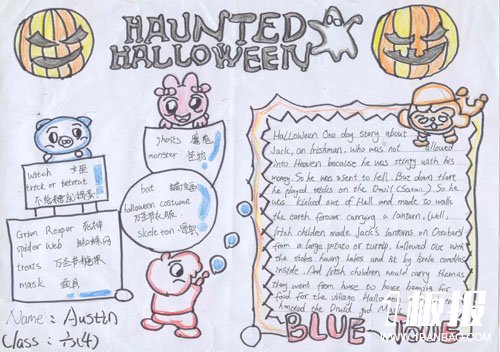 HAUNTED
HALLOWEEN
witch 女巫
trick or retreat
不给糖就捣蛋
ghosts 魔鬼
monster 怪物
bat 蝙蝠
halloween costume
万圣节衣服
skeleton 骨架
Grim Reaper 死神
spider Web 蜘蛛网
treats 万圣节糖果
mask 面具
Name: Austin
Class: 六(4)
Halloween One day story about
Jack, an Irishman, who was not allowed
into Heaven because he was stingy with his
money. So he was sent to hell. But down there
he played tricks on the Devil (Satan). So he
was kicked out of Hell and made to walk
the earth forever carrying a lantern. Well,
Irish children made Jack's lanterns on October
from a large potato or turnip, hollowed out with
the sides having holes and lit by little candles
inside. And Irish children would carry them as
they went from house to house begging for
food for the village Hallowe
honored the Druid god Mu
BLUE
WWW.BANBAO.COM